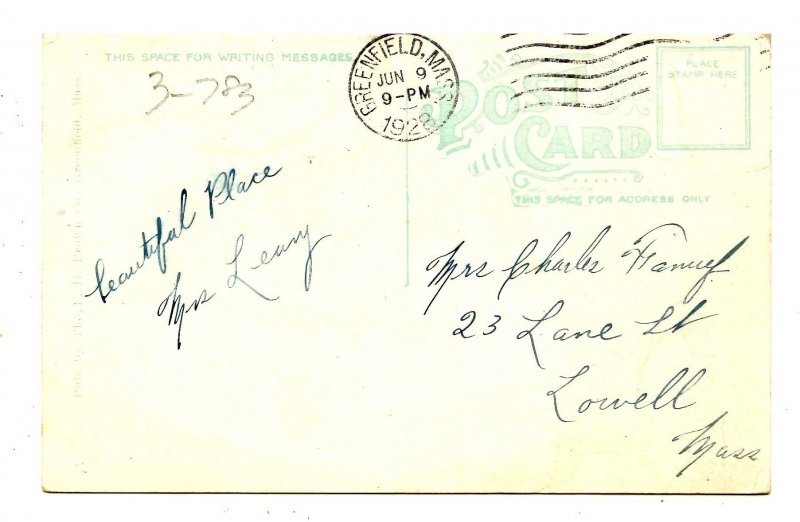 THIS SPACE FOR WRITING MESSAGES
3-783
GREENFIELD, MASS.
JUN 9
9-PM
1928
POST
CARD
PLACE
STAMP HERE
THIS SPACE FOR ADDRESS ONLY
beautiful Place
Mrs Leary
Mrs Charles
23 Lane St
Lowell
Mass
Greenfield, Mass.